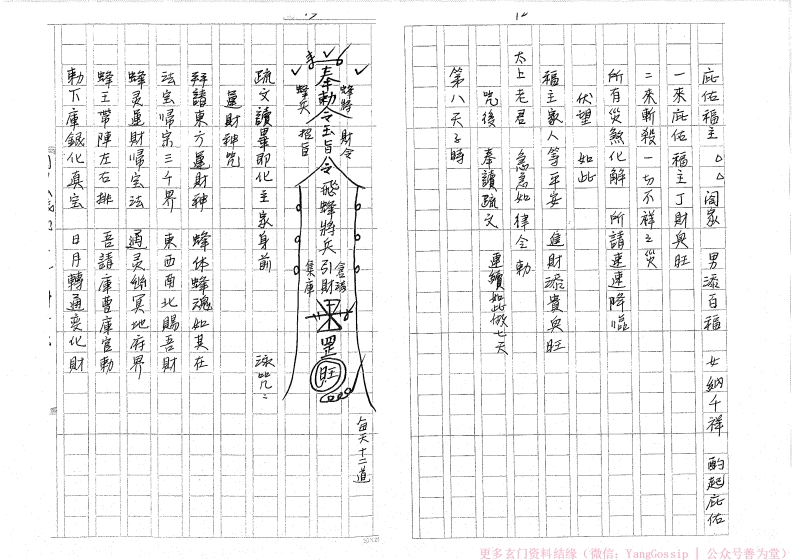 12
庇佑福主△△闔家 男添百福 女納千祥 酌起庇佑
一來庇佑福主丁財興旺
二來斬殺一切不祥之災
所有災煞化解 所請速速降臨
伏望 如此
福主家人等平安 進財添貴興旺
太上老君 急急如律令勅
咒後 奉讀疏文 連續如此做七天
第八天子時
每天十二道
蜂將 財令
奉勅令玉旨令飛蜂將兵引財
罡
旺
蜂兵 招旨
集庫
疏文讀畢即化主家身前 泳咒:
運財神咒
拜請東方運財神 蜂体蜂魂如其在
法宝歸宗三千界 東西南北賜吾財
蜂灵運財歸宝法 通灵納冥地府界
蜂王帶陣左右排 吾請庫曹庫官勅
勅下庫銀化真宝 日月轉通变化財
更多玄门资料结缘（微信：YangGossip | 公众号善为堂）